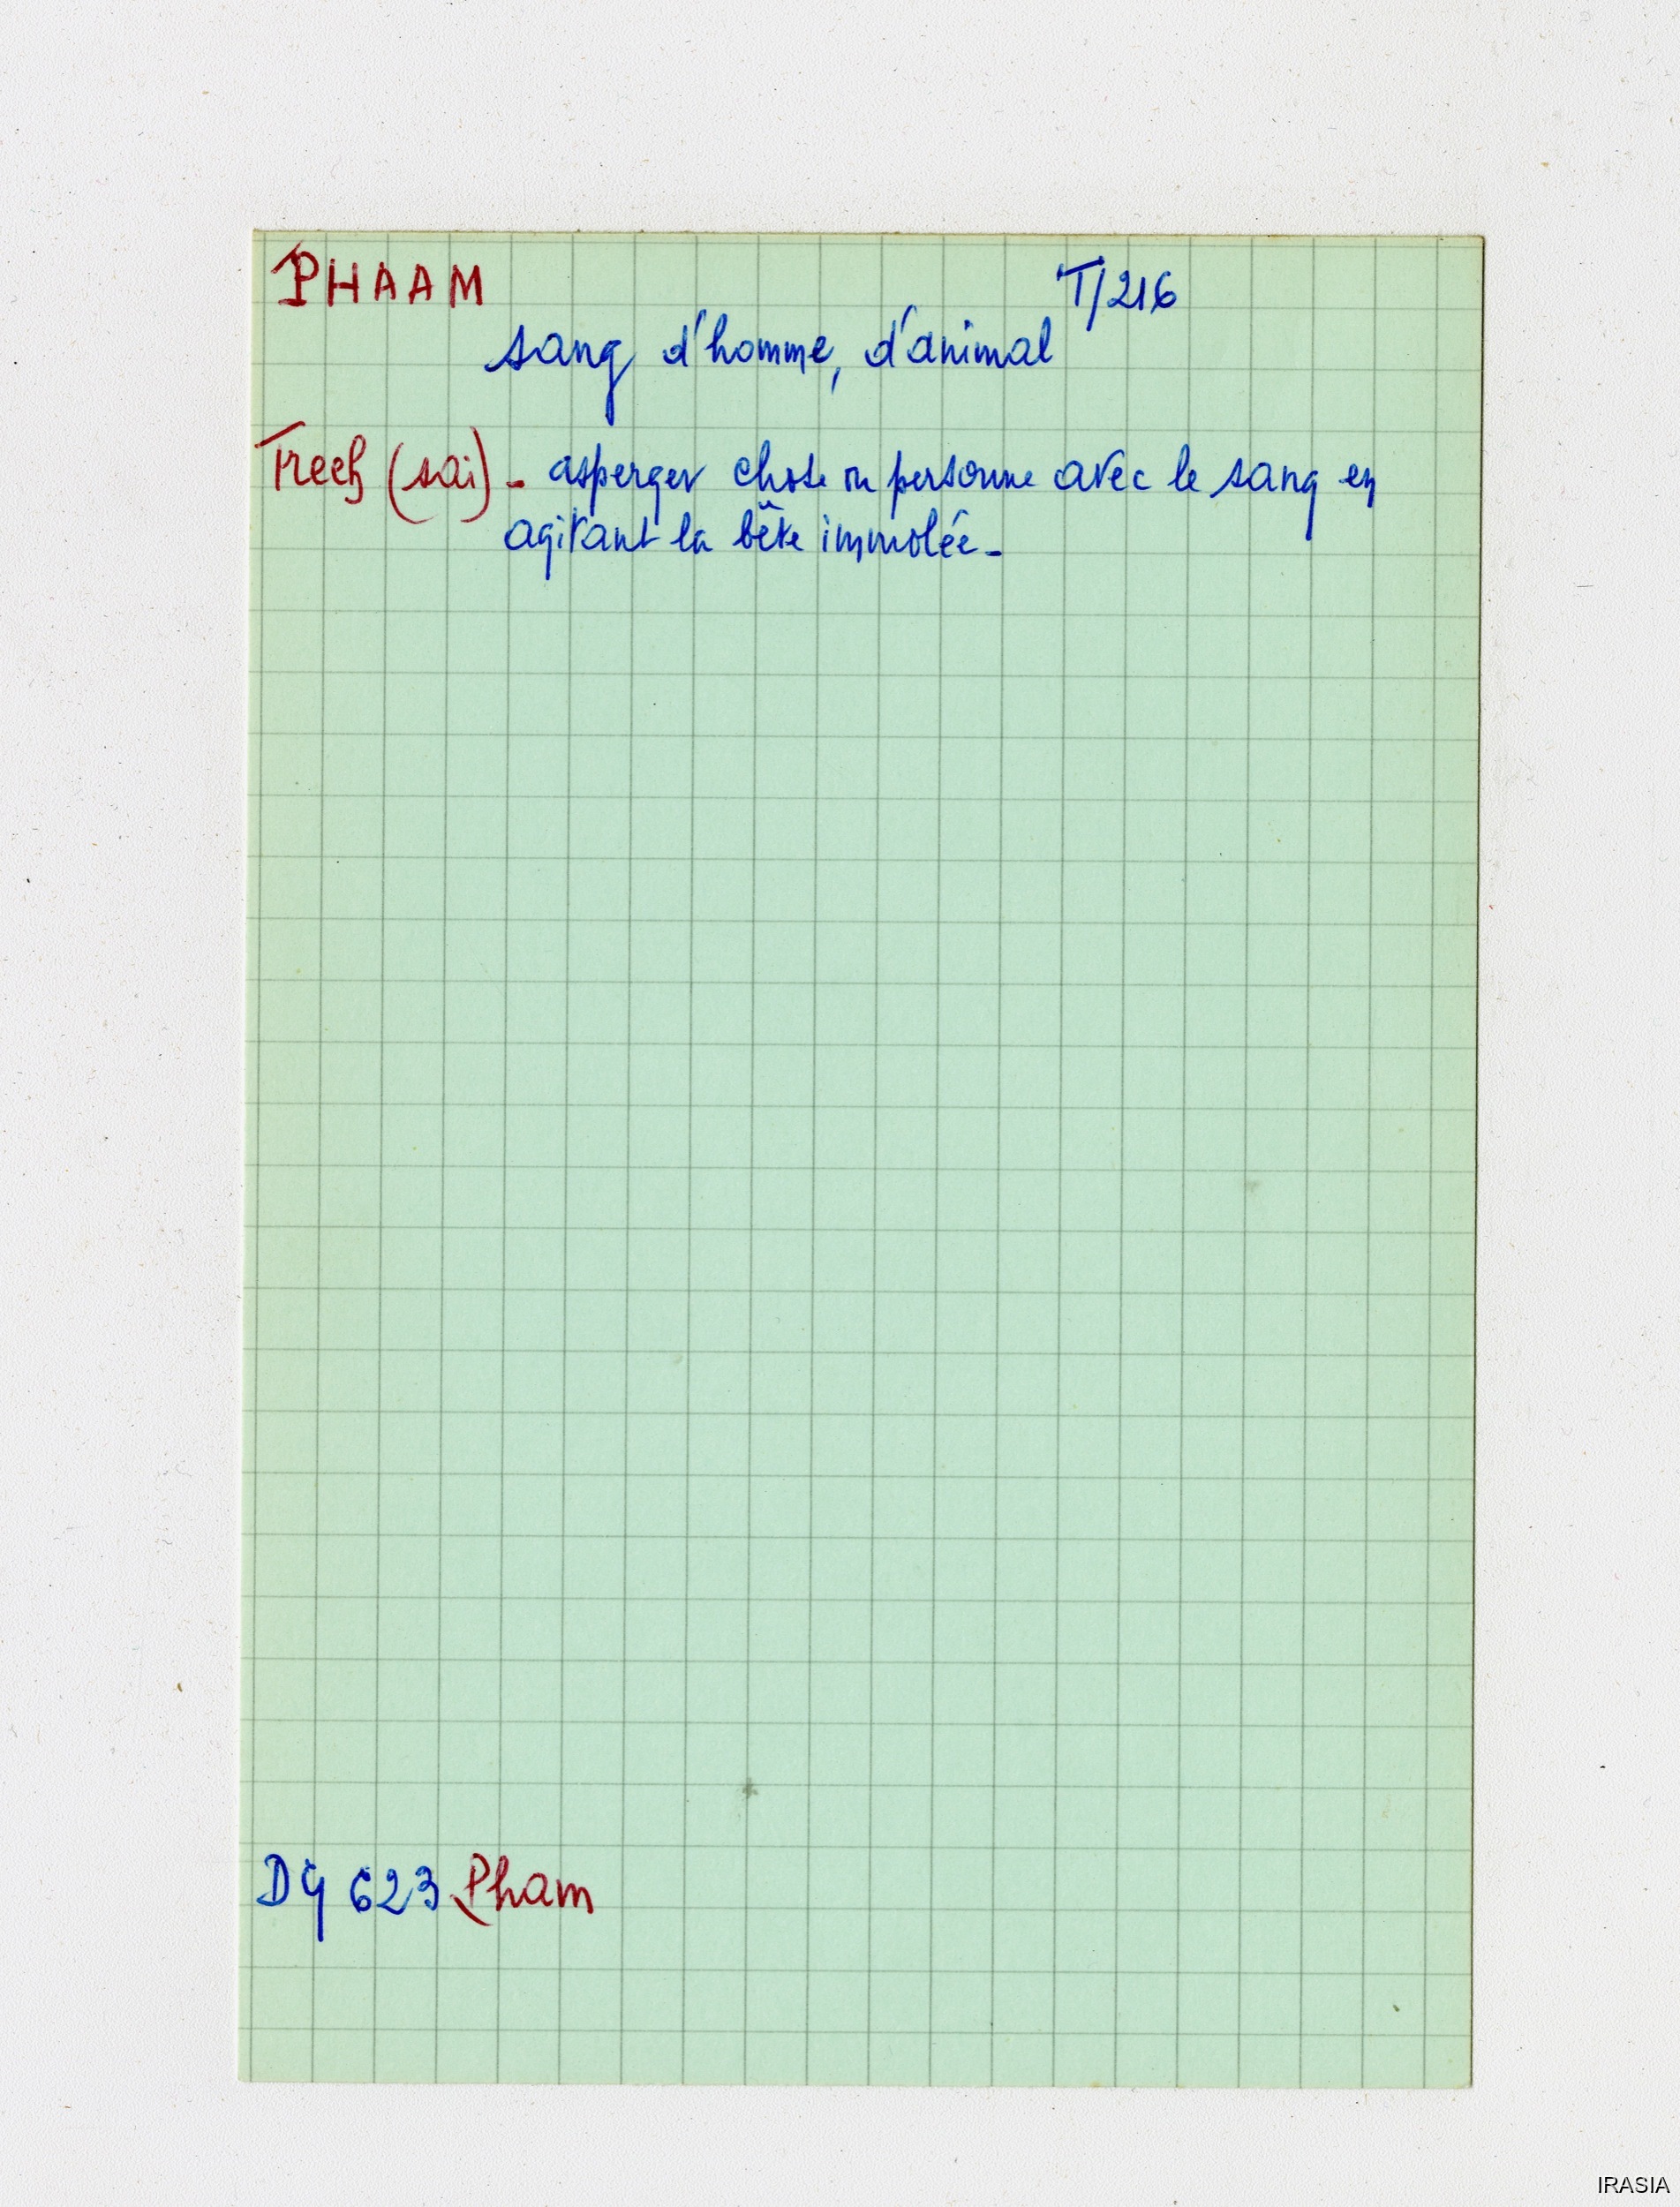 PHAAM T/216
sang d'homme, d'animal
(sai) - asperger chose ou personne avec le sang en
agitant la bête immolée -
DG 623 Pham
IRASIA